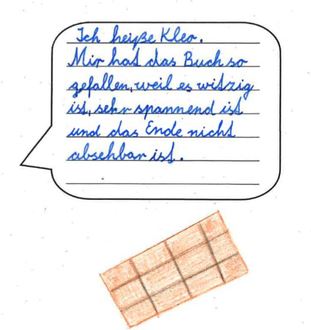 Ich heiße Kleo.
Mir hat das Buch so
gefallen, weil es witzig
ist, sehr spannend ist
und das Ende nicht
absehbar ist.